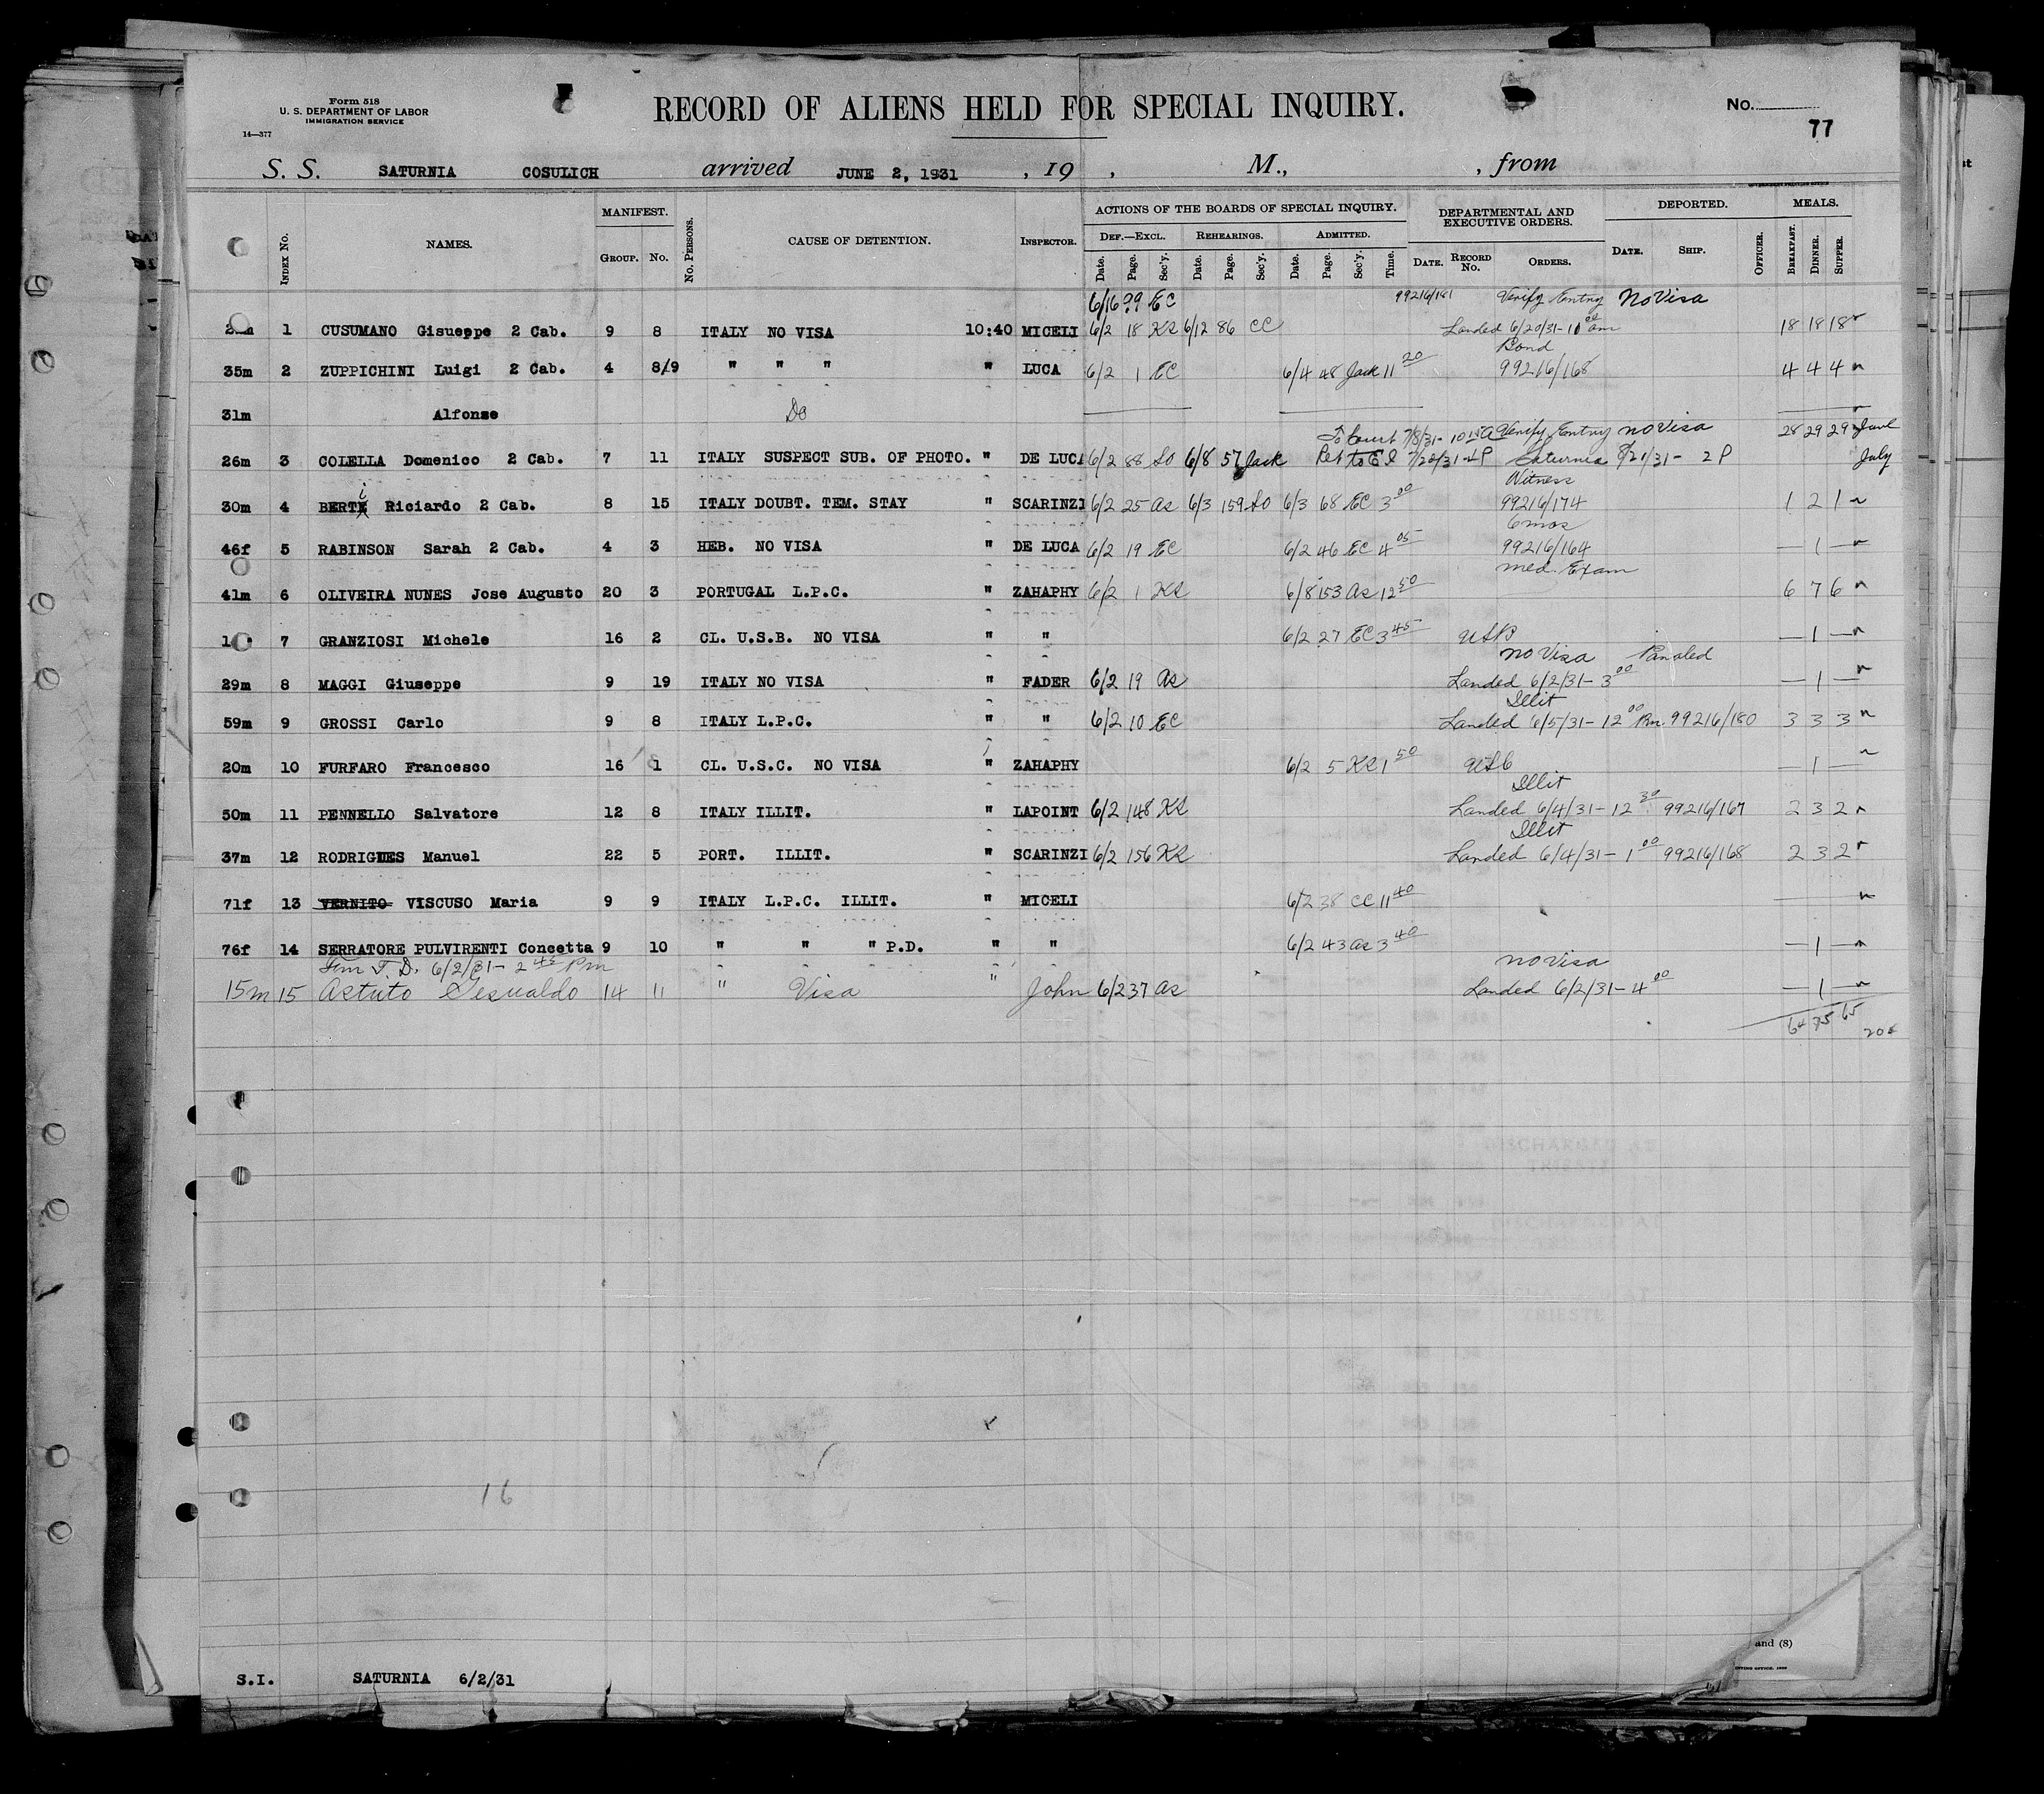 Form 518
U. S. DEPARTMENT OF LABOR
IMMIGRATION SERVICE
14—377
RECORD OF ALIENS HELD FOR SPECIAL INQUIRY.
No.
77
S. S. SATURNIA COSULICH arrived JUNE 2, 1931 , 19 , M., , from
INDEX No. NAMES. MANIFEST. GROUP. No. No. PERSONS. CAUSE OF DETENTION. INSPECTOR. ACTIONS OF THE BOARDS OF SPECIAL INQUIRY. DEF.—EXCL. Date. Page. Sec'y. REHEARINGS. Date. Page. Sec'y. ADMITTED. Date. Page. Sec'y. Time. DEPARTMENTAL AND EXECUTIVE ORDERS. DATE. RECORD No. ORDERS. DEPORTED. DATE. SHIP. OFFICER. MEALS. BREAKFAST. DINNER. SUPPER.
6/16 EC 99216/181 Verify Entry No Visa
1 CUSUMANO Gisueppe 2 Cab. 9 8 ITALY NO VISA 10:40 MICELI 6/2 18 KS 6/12 86 CC Landed 6/20/31 - 11 00 am 18 18 18
Bond
35m 2 ZUPPICHINI Luigi 2 Cab. 4 8/9 " " " " LUCA 6/2 1 EC 6/4 48 Jack 11 20 99216/168 4 4 4
31m Alfonse Do
To Court 7/8/31 - 10 15 A Verify Entry no Visa 28 29 29 June
26m 3 COLELLA Domenico 2 Cab. 7 11 ITALY SUSPECT SUB. OF PHOTO. " DE LUCA 6/2 88 SO 6/8 57 Jack Ret to E I 7/20/31 - 4 P Saturnia 8/21/31 - 2 P July
Witness
30m 4 BERTi Riciardo 2 Cab. 8 15 ITALY DOUBT. TEM. STAY " SCARINZI 6/2 25 as 6/3 159 SO 6/3 68 EC 3 00 99216/174 1 2 1
6 mos
46f 5 RABINSON Sarah 2 Cab. 4 3 HEB. NO VISA " DE LUCA 6/2 19 EC 6/2 46 EC 4 05 99216/164 — 1 —
med. Exam
41m 6 OLIVEIRA NUNES Jose Augusto 20 3 PORTUGAL L.P.C. " ZAHAPHY 6/2 1 KS 6/8 153 as 12 50 6 7 6
7 GRANZIOSI Michele 16 2 CL. U.S.B. NO VISA " " 6/2 27 EC 3 45 USB — 1 —
no Visa Panaled
29m 8 MAGGI Giuseppe 9 19 ITALY NO VISA " FADER 6/2 19 as Landed 6/2/31 - 3 00 — 1 —
Illit
59m 9 GROSSI Carlo 9 8 ITALY L.P.C. " " 6/2 10 EC Landed 6/5/31 - 12 00 Pm. 99216/180 3 3 3
20m 10 FURFARO Francesco 16 1 CL. U.S.C. NO VISA " ZAHAPHY 6/2 5 KS 1 50 USC — 1 —
Illit
50m 11 PENNELLO Salvatore 12 8 ITALY ILLIT. " LAPOINT 6/2 148 KS Landed 6/4/31 - 12 30 99216/167 2 3 2
Illit
37m 12 RODRIGUES Manuel 22 5 PORT. ILLIT. " SCARINZI 6/2 156 KS Landed 6/4/31 - 1 00 99216/168 2 3 2
71f 13 VERNITO VISCUSO Maria 9 9 ITALY L.P.C. ILLIT. " MICELI 6/2 38 CC 11 40
76f 14 SERRATORE PULVIRENTI Concetta 9 10 " " " P.D. " " 6/2 43 as 3 40 — 1 —
Fm T. D. 6/2/31 - 2 45 Pm no visa
15m 15 Astuto Gesualdo 14 11 " Visa " John 6/2 37 as Landed 6/2/31 - 4 00 — 1 —
64 75 65
16
and (8)
S.I. SATURNIA 6/2/31